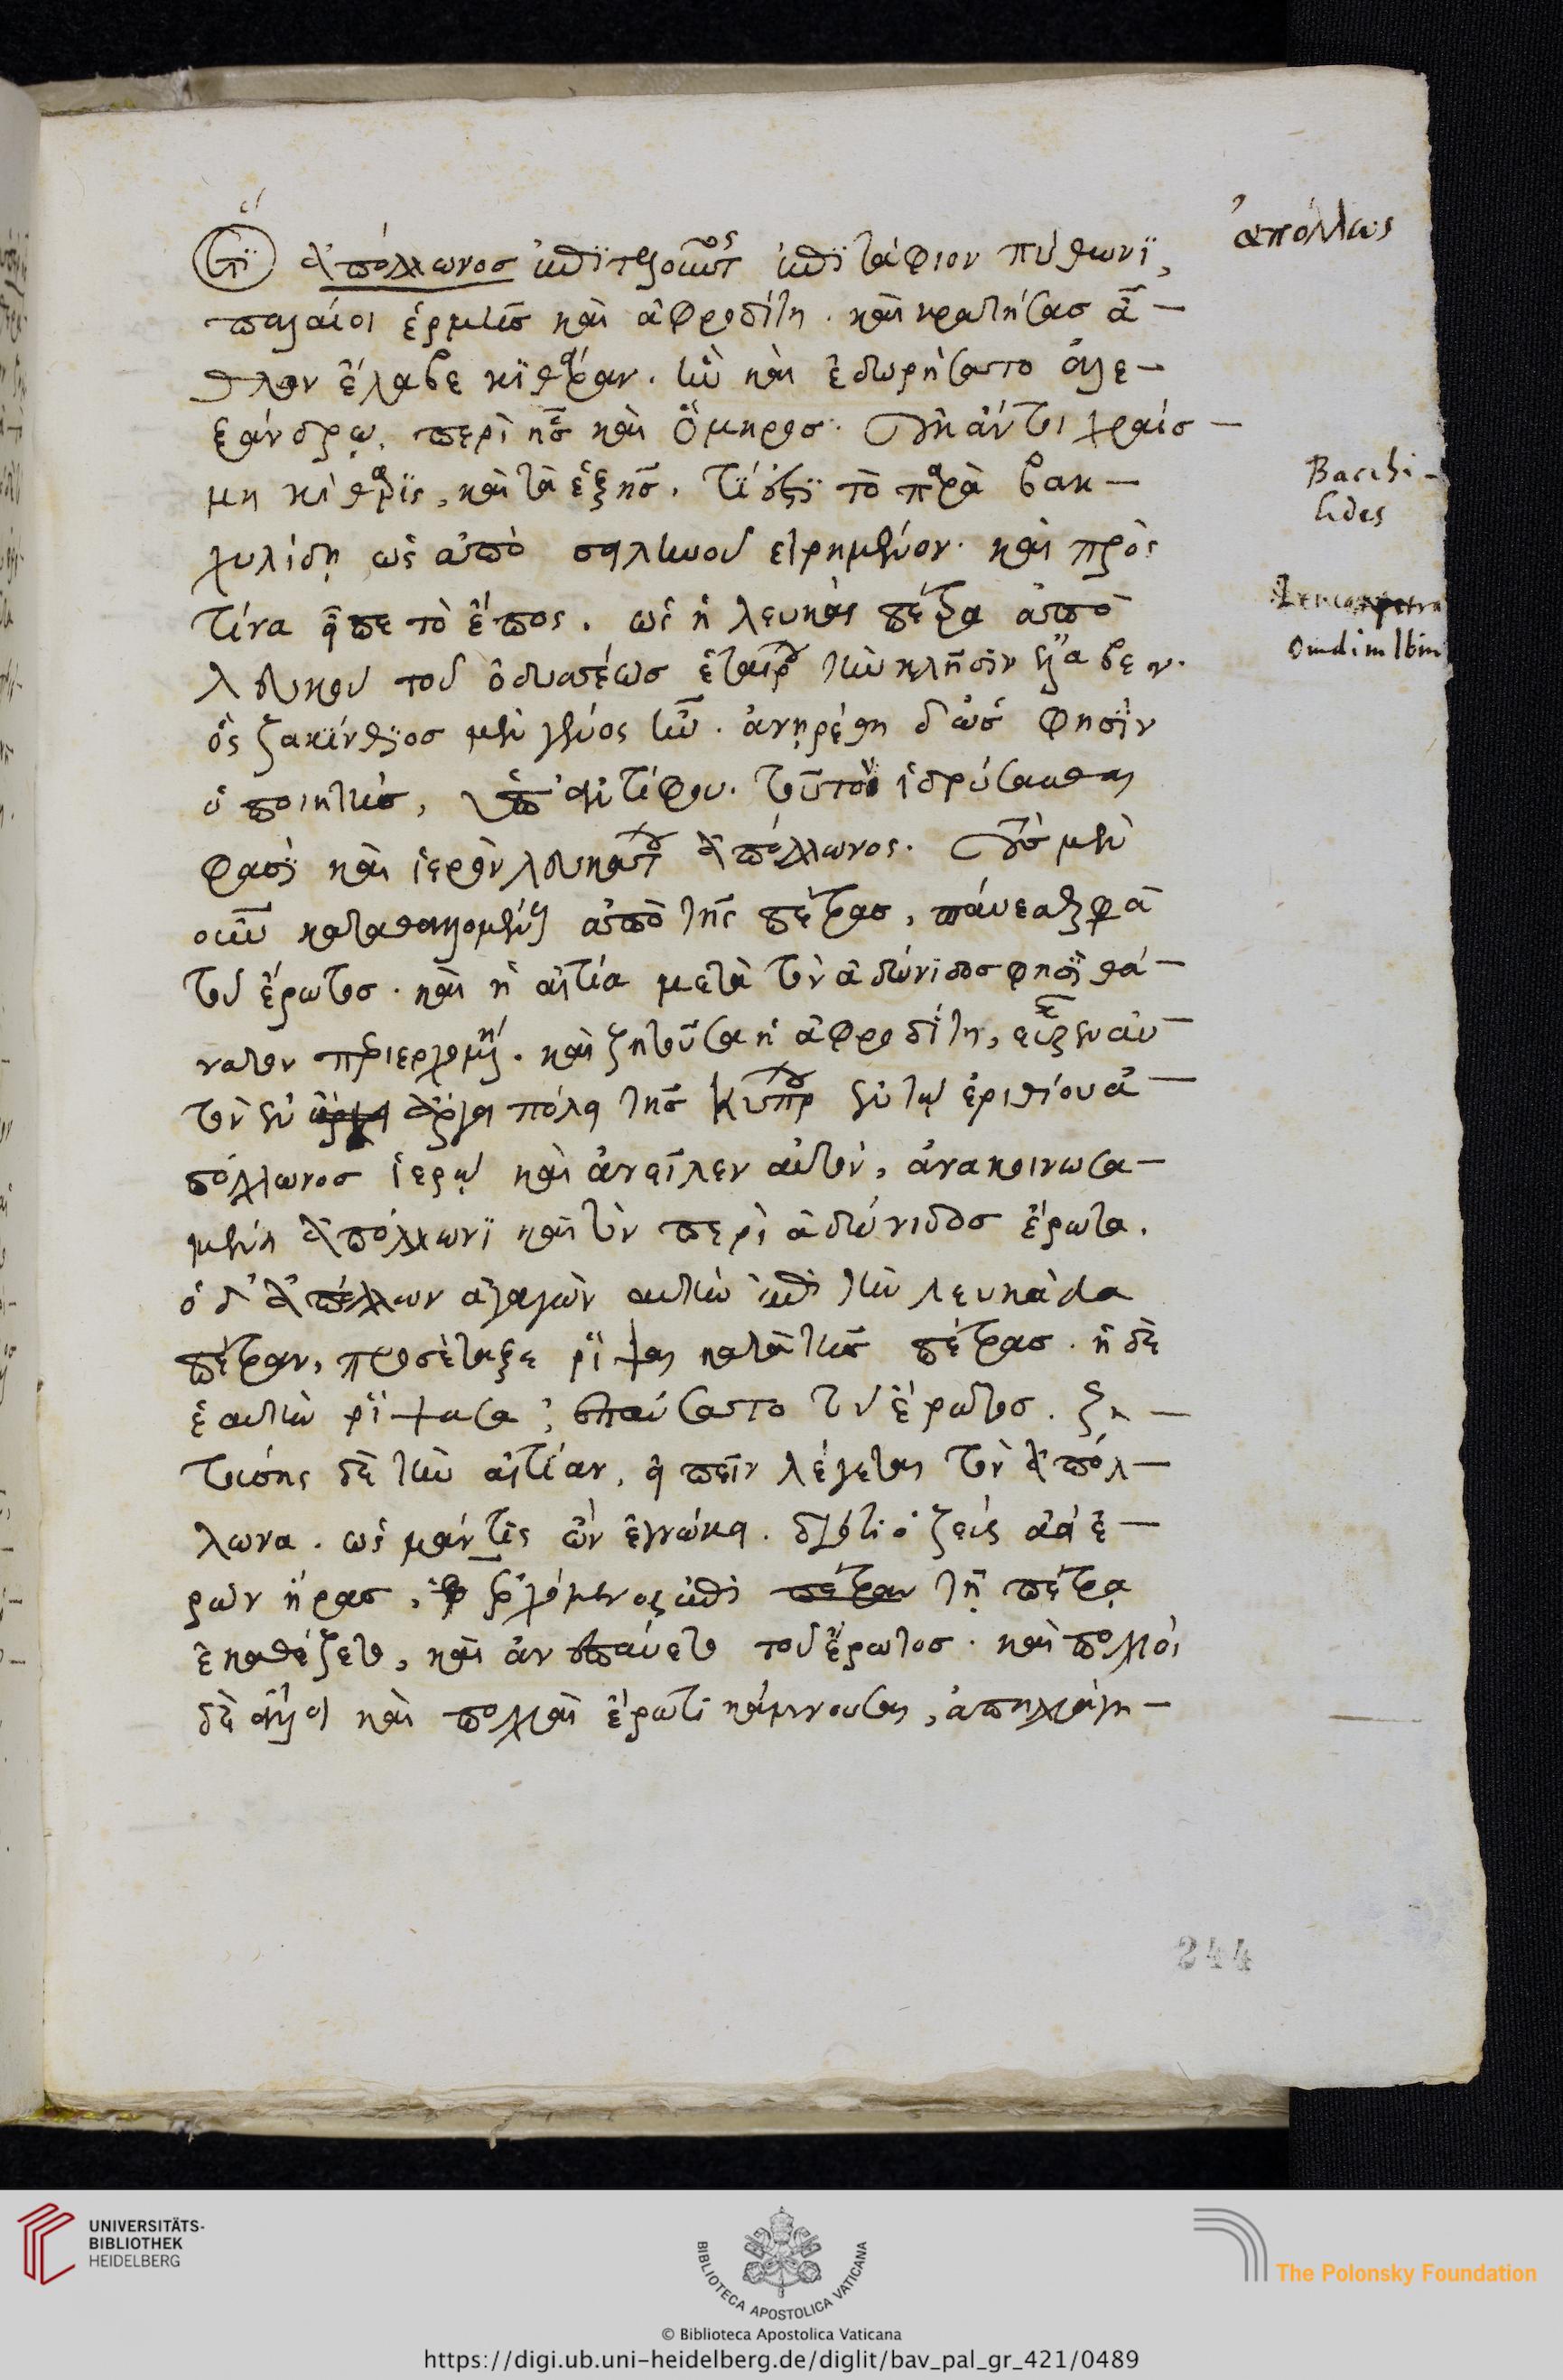 ὅτι ἀπόλλωνος ἐπιτελοῦντος ἐπιτάφιον πύθωνι,
παλαίοι ἑρμῆς καὶ ἀφροδίτη. καὶ κρατήσας ἆ-
θλον ἔλαβε κιθάραν. ἣν καὶ ἐδωρήσατο ἀλε-
ξάνδρῳ. περὶ ἧς καὶ ὅμηρος. οὐκ ἄν τοι χραίσ-
μη κίθαρις, καὶ τὰ ἑξῆς. τί ἐστι τὸ παρὰ βακ-
χυλίδῃ ὡς ἀπὸ σαληνοῦ εἰρημένον. καὶ πρὸς
τίνα εἶπε τὸ ἔπος. ὡς ἡ λευκὰς πέτρα ἀπὸ
λεύκου τοῦ ὀδυσσέως ἑταίρου τὴν κλῆσιν ἔλαβεν.
ὃς ζακύνθιος μὲν γένος ἦν. ἀνῃρέθη δ' ὥς φησιν
ὁ ποιητής, ὑπ' ἀντίφου. τοῦτον ἱδρύσασθαι
φασὶ καὶ ἱερὸν λευκάτου ἀπόλλωνος. τοὺς μὲν
οὖν καταθαλλομένους ἀπὸ τῆς πέτρας, παύεσθαί φασι
τοῦ ἔρωτος. καὶ ἡ αἰτία μετὰ τὸν ἀδώνιδος φησὶ θά-
νατον περιερχομένη. καὶ ζητοῦσα ἡ ἀφροδίτη, εὗρεν αὐ-
τὸν ἐν ἄργει πόλει τῆς κύπρου ἐν τῷ ἐριθίου ἀ-
πόλλωνος ἱερῷ καὶ ἀνεῖλεν αὐτόν, ἀνακοινωσα-
μένη ἀπόλλωνι καὶ τὸν περὶ ἀδώνιδος ἔρωτα.
ὁ δ' ἀπόλλων ἀγαγὼν αὐτὴν ἐπὶ τὴν λευκάδα
πέτραν, προσέταξε ῥίψαι κατὰ τῆς πέτρας. ἡ δὲ
ἑαυτὴν ῥίψασα, ἐπαύσατο τοῦ ἔρωτος. ζη-
τούσης δὲ τὴν αἰτίαν, εἰπεῖν λέγεται τὸν ἀπόλ-
λωνα. ὡς μάντις ὢν ἐγνώκει. διότι ὁ ζεὺς ἀεὶ ἐ-
ρῶν ἥρας, ἐρχόμενος ἐπὶ πέτραν τῇ πέτρᾳ
ἐκαθέζετο, καὶ ἀνεπαύετο τοῦ ἔρωτος. καὶ πολλοὶ
δὲ ἄλλοι καὶ πολλαὶ ἔρωτι κάμνουσαι, ἀπηλλάγη-
ἀπόλλως
Bacchi-
lides
244
UNIVERSITÄTS-
BIBLIOTHEK
HEIDELBERG
BIBLIOTECA APOSTOLICA VATICANA
The Polonsky Foundation
© Biblioteca Apostolica Vaticana
https://digi.ub.uni-heidelberg.de/diglit/bav_pal_gr_421/0489